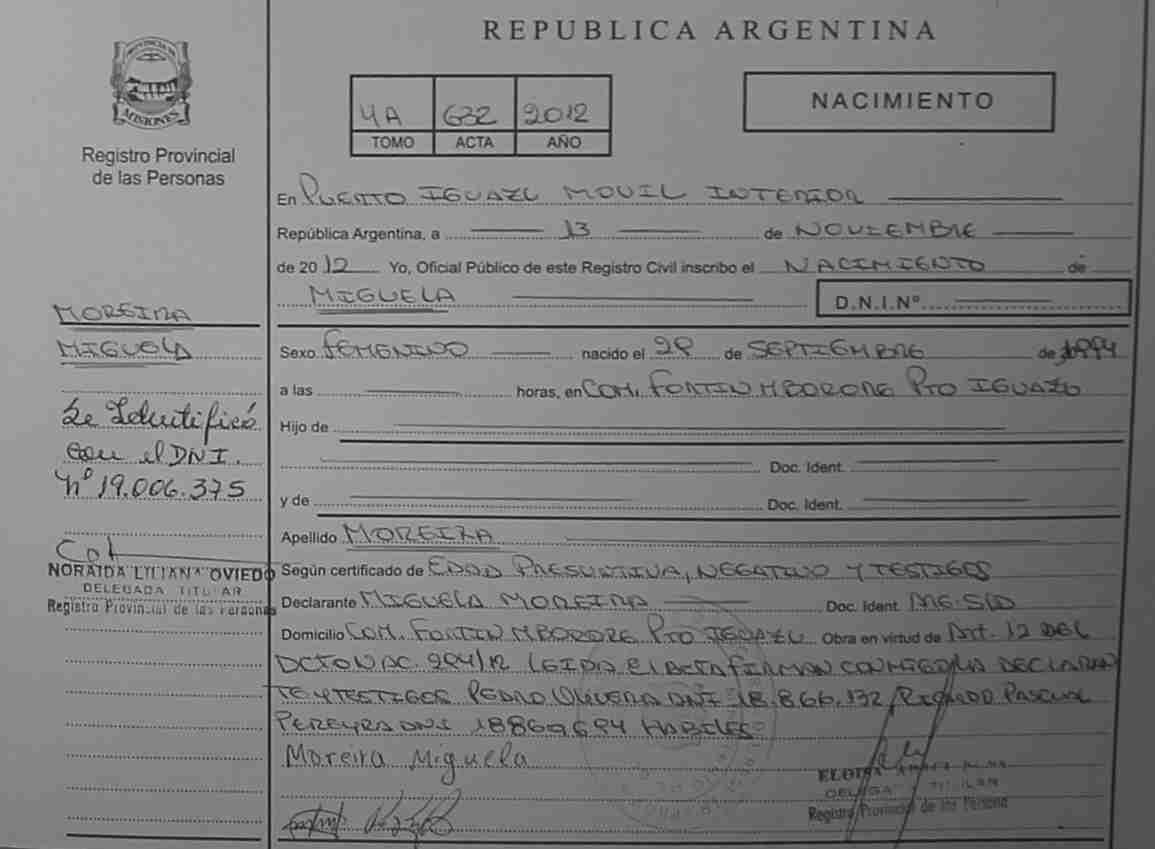 REPUBLICA ARGENTINA
PROVINCIA DE
MISIONES
Registro Provincial
de las Personas
4A 632 2012
TOMO ACTA AÑO
NACIMIENTO
En PUERTO IGUAZU MOVIL INTERIOR
República Argentina, a 13 de NOVIEMBRE
de 2012 Yo, Oficial Público de este Registro Civil inscribo el NACIMIENTO de
MIGUELA D.N.I.Nº
MOREIRA
MIGUELA
Se Identificó
con el DNI.
Nº 19.006.375
NORAIDA LILIANA OVIEDO
DELEGADA TITULAR
Registro Provincial de las Personas
Sexo FEMENINO nacido el 29 de SEPTIEMBRE de 1994
a las horas, en COM. FORTIN MBORORE PTO IGUAZU
Hijo de
Doc. Ident.
y de Doc. Ident.
Apellido MOREIRA
Según certificado de EDAD PRESUNTIVA, NEGATIVO Y TESTIGOS
Declarante MIGUELA MOREIRA Doc. Ident.
Domicilio COM. FORTIN MBORORE PTO IGUAZU Obra en virtud de Art. 12 DEL
DCTO NAC. 294/12 LEIDA EL ACTA FIRMAN CONMIGO LA DECLARAN
TE Y TESTIGOS PEDRO DNI 18.866.132, PASCUAL
PEREYRA DNI 18869694 HABILES
Moreira Miguela
DELEGADA TITULAR
Registro Provincial de las Persona